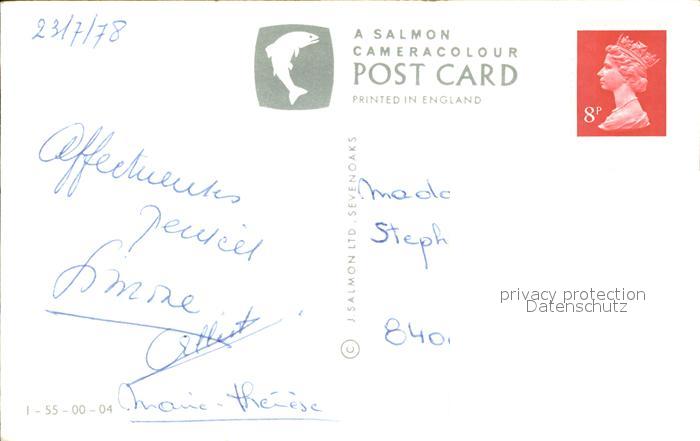 23/7/78
A SALMON
CAMERACOLOUR
POST CARD
PRINTED IN ENGLAND
8P
Affectueuses
pensées
Simone
Marie-Thérèse
1-55-00-04
© J. SALMON LTD., SEVENOAKS
Mada
Steph
840
privacy protection
Datenschutz